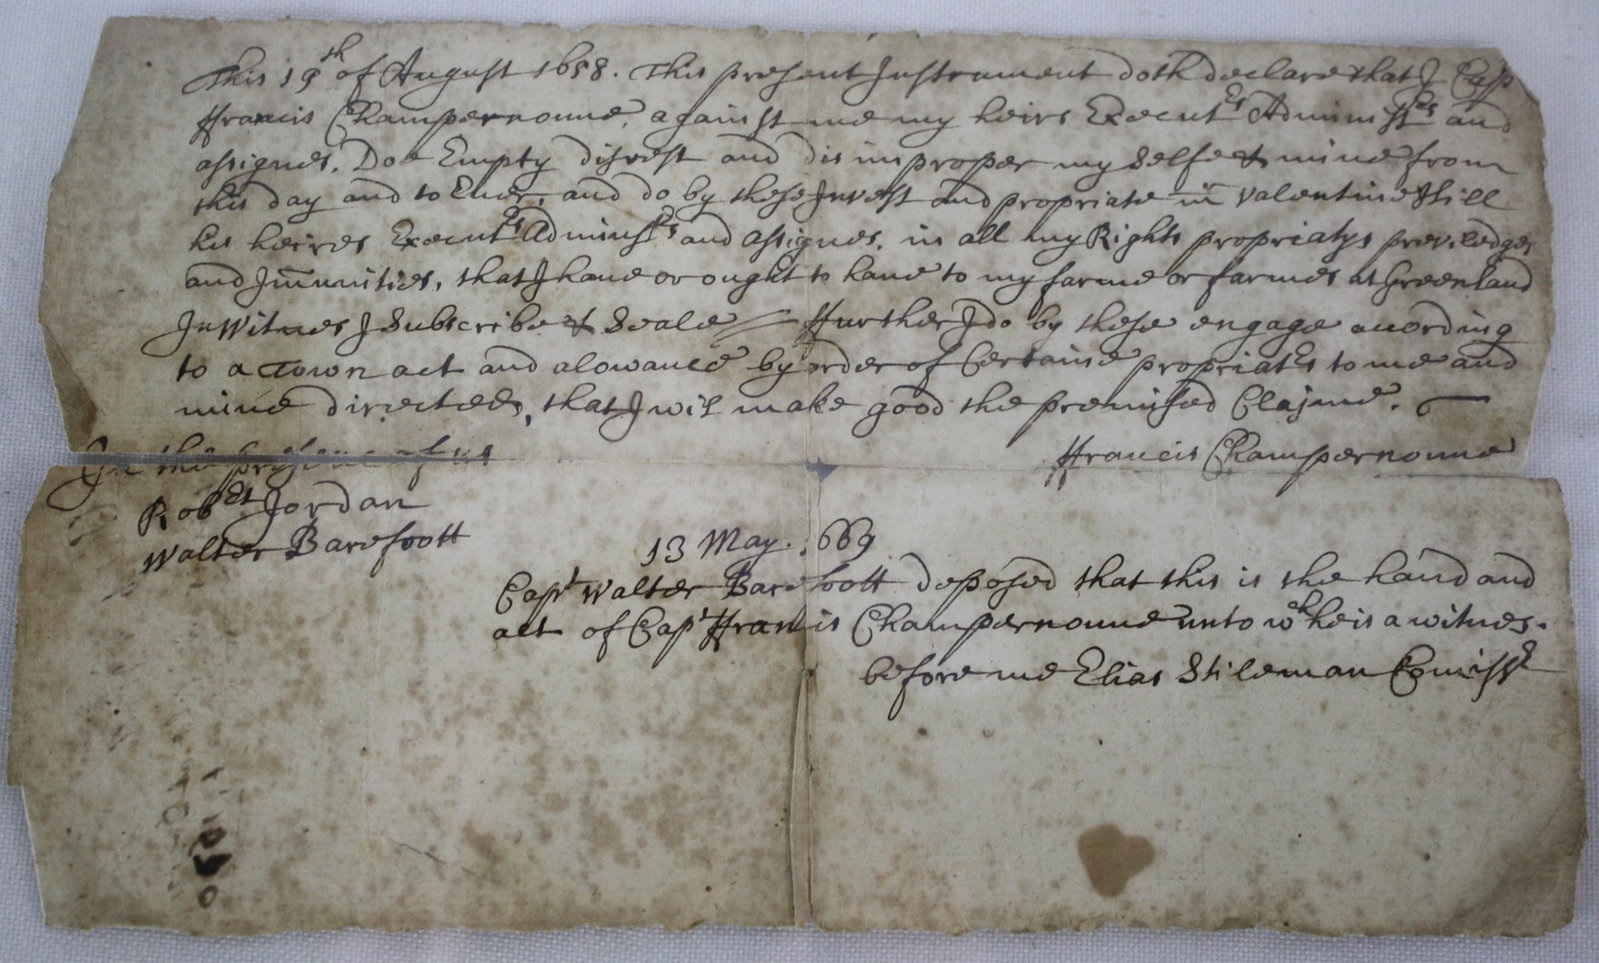 This 19th of August 1658. This present Instrument doth declare that I Capt
ffrancis Champernoune, against me my heirs Executrs Administrs and
assignes, Doe Empty disvest and disimproper my selfe & mine from
this day and to Euer, and do by these Invest and propriate in valentine Hill
his heires Executrs Administrs and assignes, in all my Rights propriatys previledges
and Imunities, that I haue or ought to haue to my farme or farmes at Greenland
In Witnes I Subscribe & Seale ffurther I do by these engage acording
to a Town act and alowance by order of Certaine propriatrs to me and
mine directed, that I wil make good the premised Clajme.
In the presence of us
ffrancis Champernoune
Robert Jordan
Walter Barefoott
13 May. 669
Capt Walter Barefoott deposed that this is the hand and
act of Capt ffrancis Champernoune unto wch he is a witnes.
before me Elias Stileman Comissr